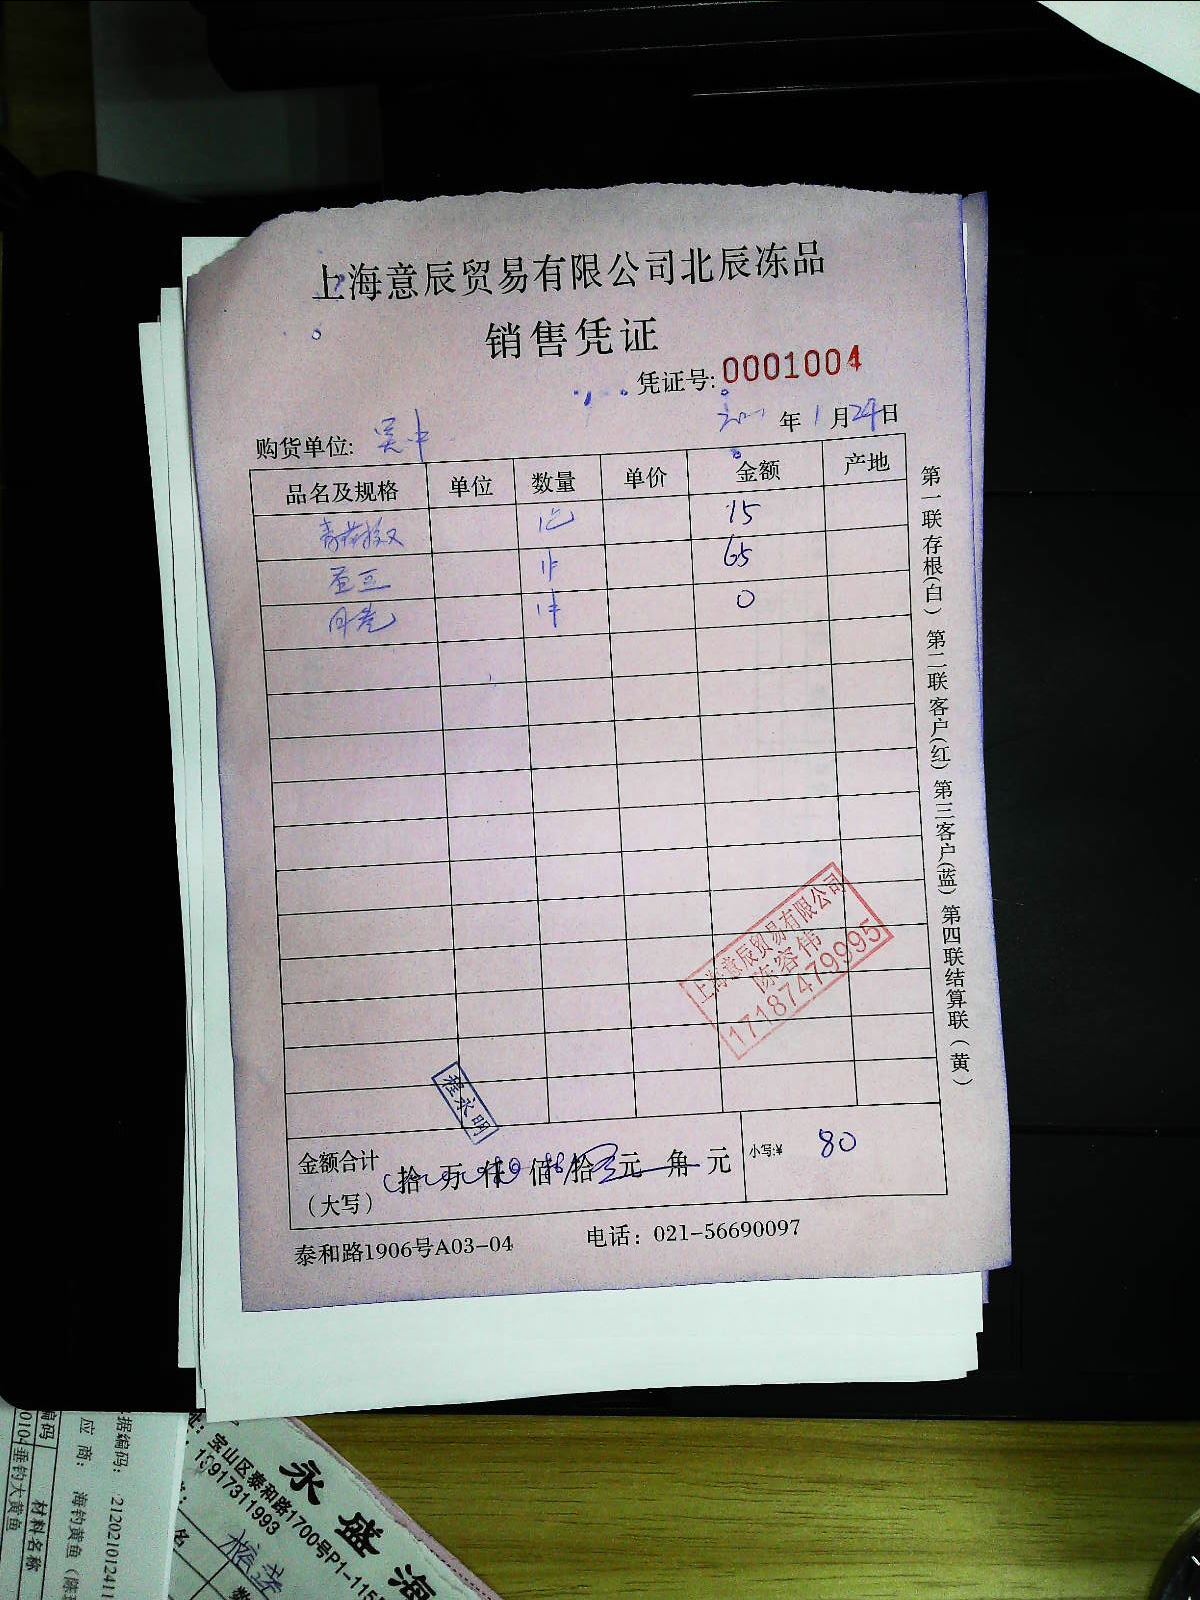 上海意辰贸易有限公司北辰冻品
销售凭证
凭证号: 0001004
年 1 月 29 日
购货单位: 吴中
品名及规格 单位 数量 单价 金额 产地
15
蚕豆 1件 65
1件 0
第一联存根(白) 第二联客户(红) 第三客户(蓝) 第四联结算联(黄)
上海意辰贸易有限公司
陈容伟
17187479995
程永明
金额合计 (大写) 拾 万 仟 佰 拾 元 角 元 小写:¥ 80
泰和路1906号A03-04 电话: 021-56690097
永盛海
宝山区泰和路1700号P1-115
13917311993
据编码: 212021012411
应 商: 海钓黄鱼(陈
编码 材料名称
0104 垂钓大黄鱼